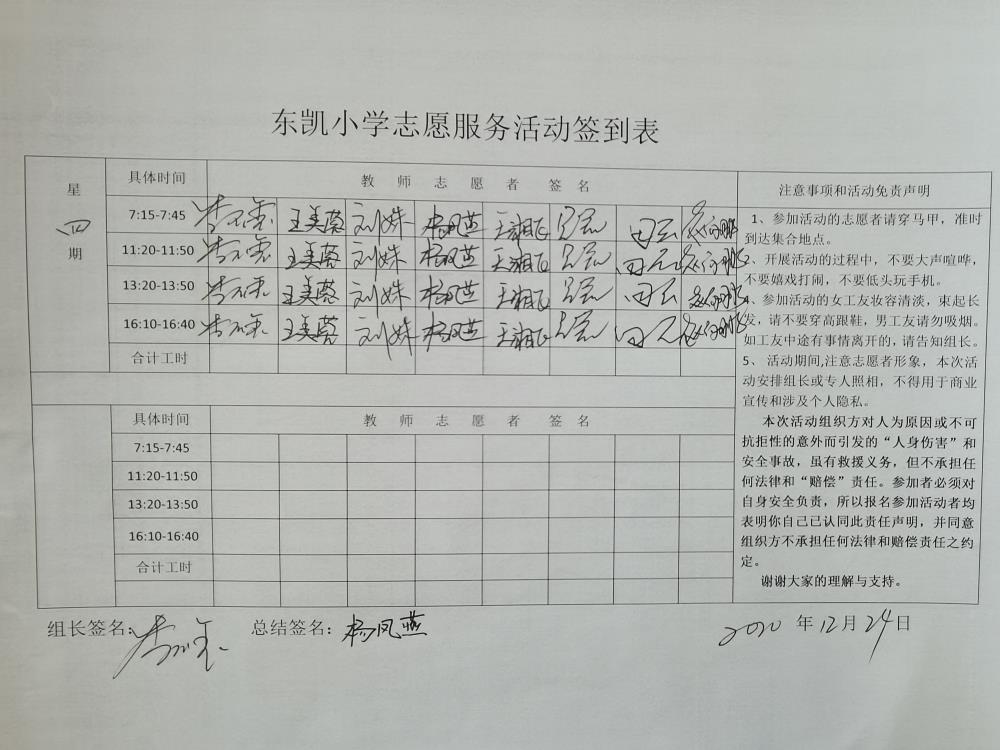 东凯小学志愿服务活动签到表
星 四 期
具体时间 教 师 志 愿 者 签 名
7:15-7:45 王美蓉 刘姝 杨凤燕 王湘飞
11:20-11:50 王美蓉 刘姝 杨凤燕 王湘飞
13:20-13:50 王美蓉 刘姝 杨凤燕 王湘飞
16:10-16:40 王美蓉 刘姝 杨凤燕 王湘飞
合计工时
具体时间 教 师 志 愿 者 签 名
7:15-7:45
11:20-11:50
13:20-13:50
16:10-16:40
合计工时
注意事项和活动免责声明
1、参加活动的志愿者请穿马甲，准时
到达集合地点。
2、开展活动的过程中，不要大声喧哗，
不要嬉戏打闹，不要低头玩手机。
4、参加活动的女工友妆容清淡，束起长
发，请不要穿高跟鞋，男工友请勿吸烟。
如工友中途有事情离开的，请告知组长。
5、活动期间,注意志愿者形象，本次活
动安排组长或专人照相，不得用于商业
宣传和涉及个人隐私。
本次活动组织方对人为原因或不可
抗拒性的意外而引发的“人身伤害”和
安全事故，虽有救援义务，但不承担任
何法律和“赔偿”责任。参加者必须对
自身安全负责，所以报名参加活动者均
表明你自己已认同此责任声明，并同意
组织方不承担任何法律和赔偿责任之约
定。
谢谢大家的理解与支持。
组长签名: 总结签名: 杨凤燕 2020 年 12 月 24 日